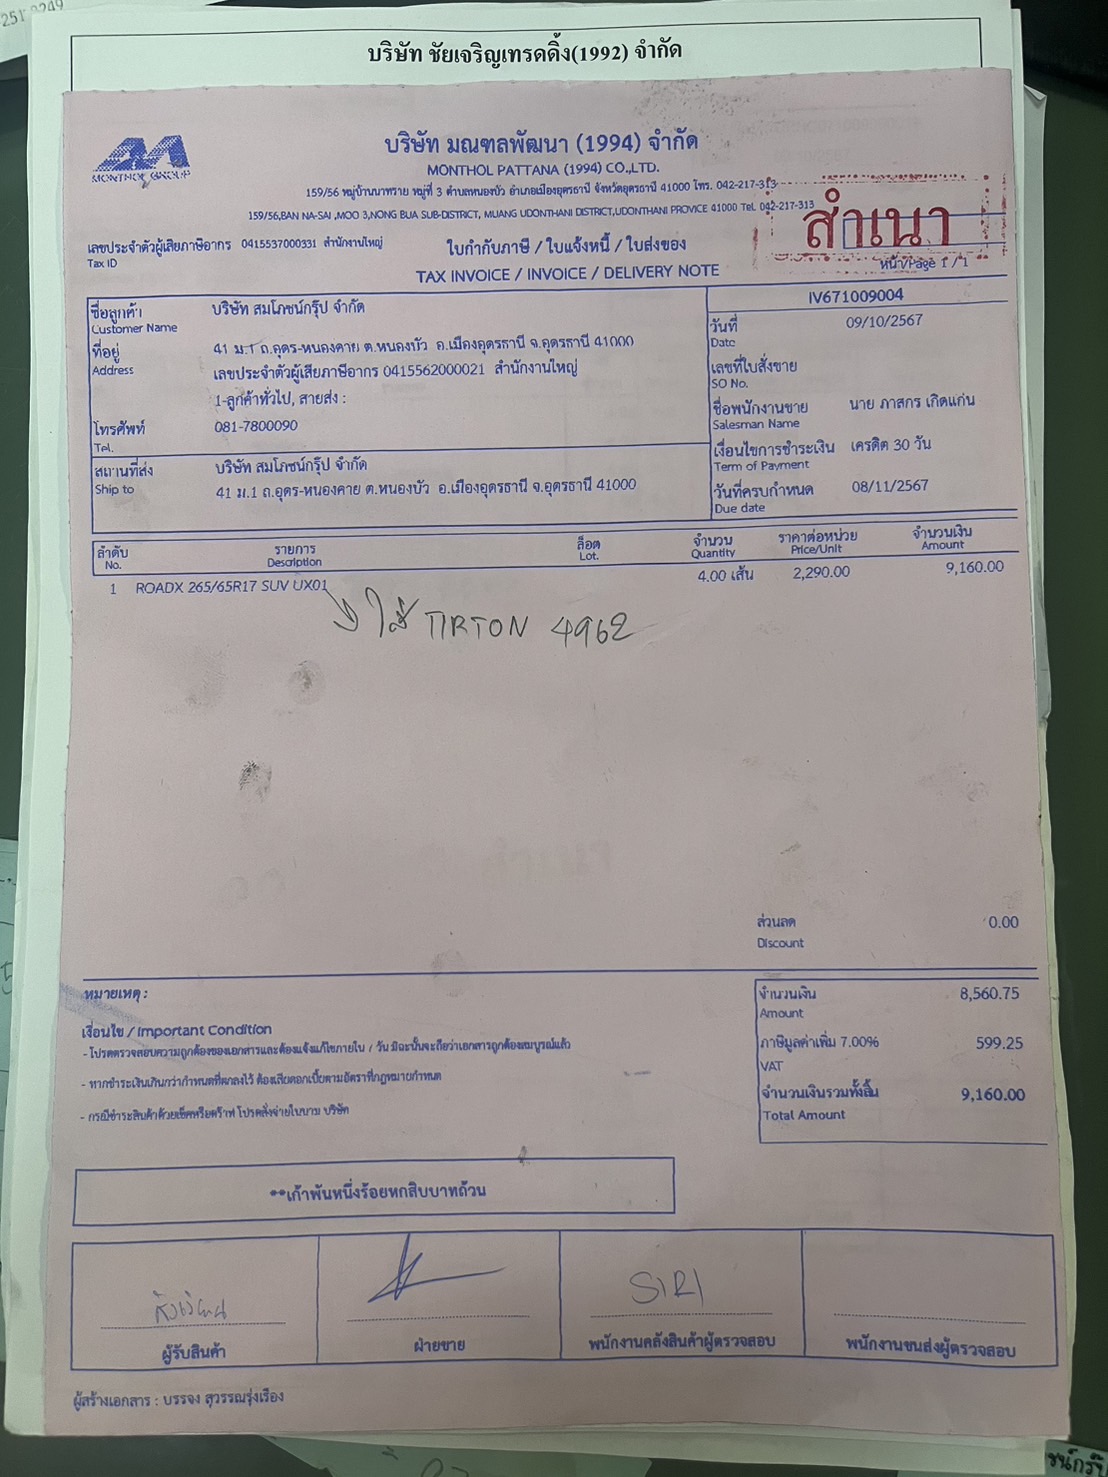 บริษัท ชัยเจริญเทรดดิ้ง(1992) จำกัด
MONTHOL GROUP
บริษัท มณฑลพัฒนา (1994) จำกัด
MONTHOL PATTANA (1994) CO.,LTD.
159/56 หมู่บ้านนาทราย หมู่ที่ 3 ตำบลหนองบัว อำเภอเมืองอุดรธานี จังหวัดอุดรธานี 41000 โทร. 042-217-313
159/56,BAN NA-SAI ,MOO 3,NONG BUA SUB-DISTRICT, MUANG UDONTHANI DISTRICT,UDONTHANI PROVICE 41000 Tel. 042-217-313
สำเนา
เลขประจำตัวผู้เสียภาษีอากร 0415537000331 สำนักงานใหญ่
Tax ID
ใบกำกับภาษี / ใบแจ้งหนี้ / ใบส่งของ
TAX INVOICE / INVOICE / DELIVERY NOTE
หน้า/Page 1 / 1
ชื่อลูกค้า บริษัท สมโภชน์กรุ๊ป จำกัด
Customer Name
ที่อยู่ 41 ม.1 ถ.อุดร-หนองคาย ต.หนองบัว อ.เมืองอุดรธานี จ.อุดรธานี 41000
Address เลขประจำตัวผู้เสียภาษีอากร 0415562000021 สำนักงานใหญ่
1-ลูกค้าทั่วไป, สายส่ง :
โทรศัพท์ 081-7800090
Tel.
สถานที่ส่ง บริษัท สมโภชน์กรุ๊ป จำกัด
Ship to 41 ม.1 ถ.อุดร-หนองคาย ต.หนองบัว อ.เมืองอุดรธานี จ.อุดรธานี 41000
IV671009004
วันที่ 09/10/2567
Date
เลขที่ใบสั่งขาย
SO No.
ชื่อพนักงานขาย นาย ภาสกร เกิดแก่น
Salesman Name
เงื่อนไขการชำระเงิน เครดิต 30 วัน
Term of Payment
วันที่ครบกำหนด 08/11/2567
Due date
ลำดับ รายการ ล็อต จำนวน ราคาต่อหน่วย จำนวนเงิน
No. Description Lot. Quantity Price/Unit Amount
1 ROADX 265/65R17 SUV UX01 4.00 เส้น 2,290.00 9,160.00
ใส่ TIRTON 4962
ส่วนลด 0.00
Discount
หมายเหตุ :
เงื่อนไข / Important Condition
- โปรดตรวจสอบความถูกต้องของเอกสารและต้องแจ้งแก้ไขภายใน 7 วัน มิฉะนั้นจะถือว่าเอกสารถูกต้องสมบูรณ์แล้ว
- หากชำระเงินเกินกว่ากำหนดที่ตกลงไว้ ต้องเสียดอกเบี้ยตามอัตราที่กฎหมายกำหนด
- กรณีชำระสินค้าด้วยเช็คหรือดร๊าฟ โปรดสั่งจ่ายในนาม บริษัท
จำนวนเงิน 8,560.75
Amount
ภาษีมูลค่าเพิ่ม 7.00% 599.25
VAT
จำนวนเงินรวมทั้งสิ้น 9,160.00
Total Amount
**เก้าพันหนึ่งร้อยหกสิบบาทถ้วน
SIRI
ผู้รับสินค้า ฝ่ายขาย พนักงานคลังสินค้าผู้ตรวจสอบ พนักงานขนส่งผู้ตรวจสอบ
ผู้สร้างเอกสาร : บรรจง สุวรรณรุ่งเรือง